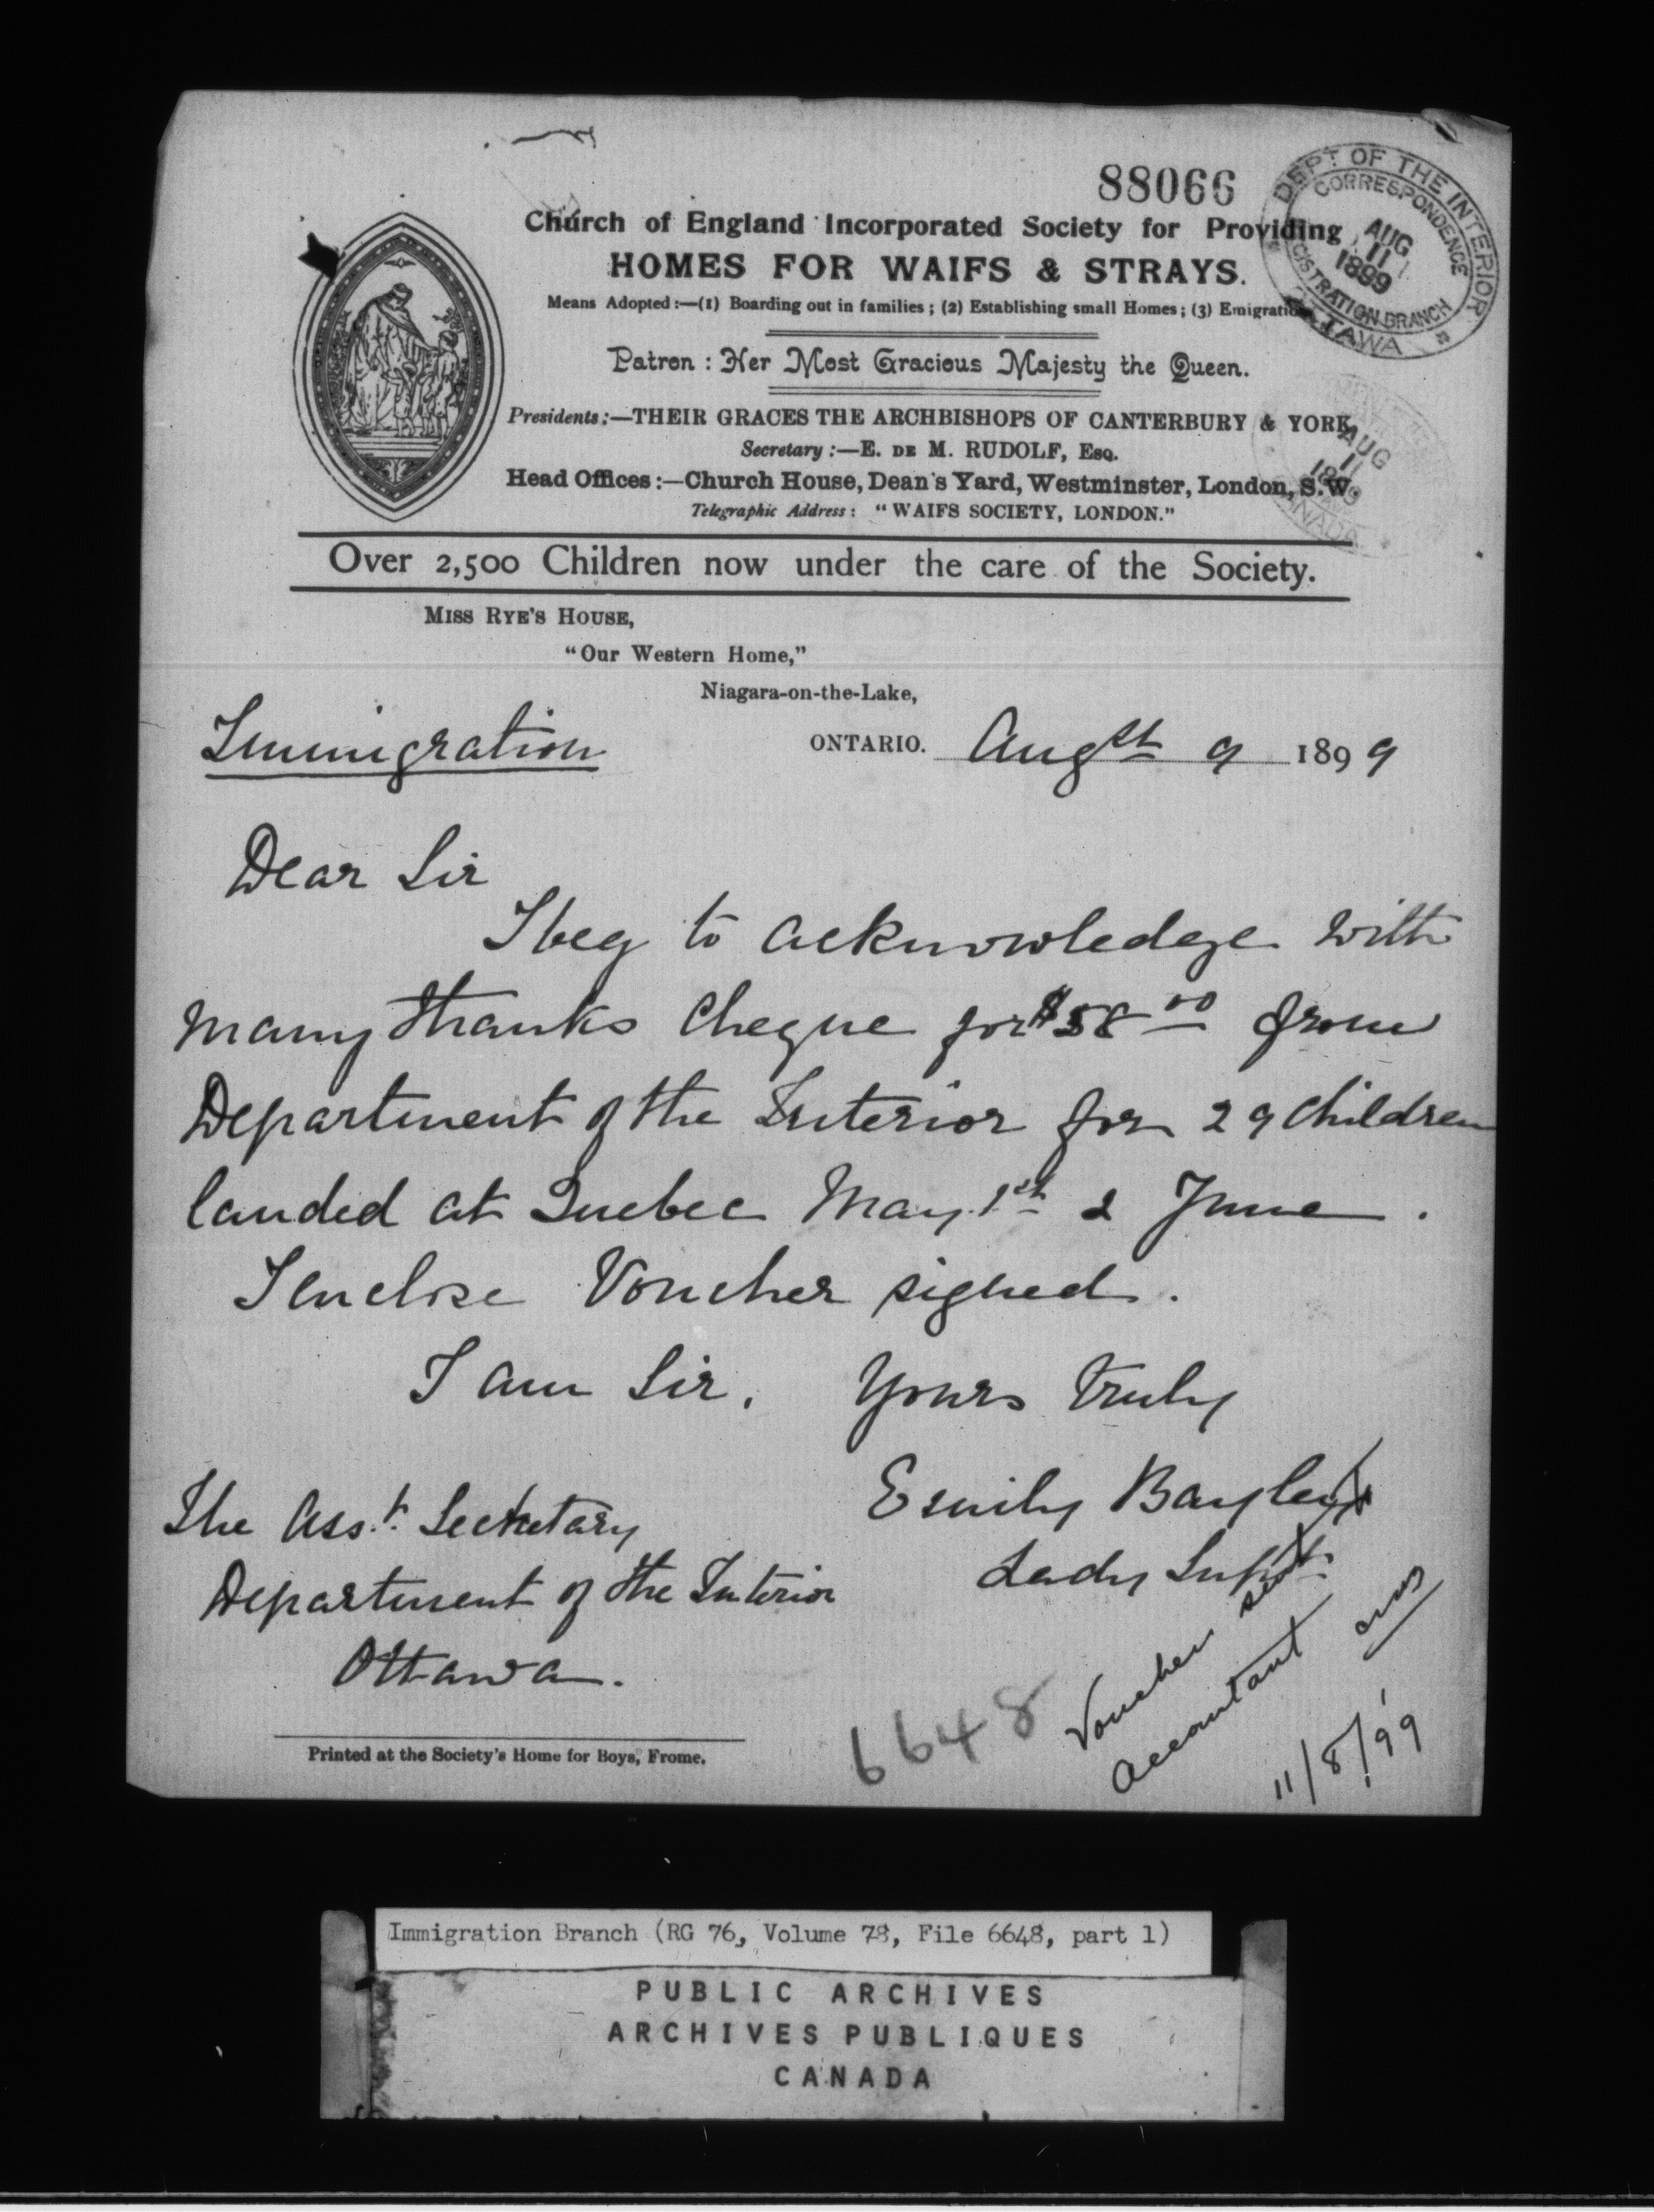 88066
DEPT OF THE INTERIOR
CORRESPONDENCE
AUG
11
1899
REGISTRATION BRANCH
OTTAWA
Church of England Incorporated Society for Providing
HOMES FOR WAIFS & STRAYS.
Means Adopted:—(1) Boarding out in families; (2) Establishing small Homes; (3) Emigration
Patron: Her Most Gracious Majesty the Queen.
Presidents:—THEIR GRACES THE ARCHBISHOPS OF CANTERBURY & YORK
Secretary:—E. DE M. RUDOLF, Esq.
Head Offices:—Church House, Dean's Yard, Westminster, London, S.W.
Telegraphic Address: "WAIFS SOCIETY, LONDON."
AUG
11
1899
CANADA
Over 2,500 Children now under the care of the Society.
MISS RYE'S HOUSE,
"Our Western Home,"
Niagara-on-the-Lake,
Immigration
ONTARIO. Augst 9 1899
Dear Sir
I beg to acknowledge with
many thanks cheque for $58 00 from
Department of the Interior for 29 children
landed at Quebec May 1st & June.
I enclose Voucher signed.
I am Sir, Yours truly
Emily Bayley
Lady Supt.
The Asst. Secretary
Department of the Interior
Ottawa.
Voucher sent
Accountant
11/8/99
6648
Printed at the Society's Home for Boys, Frome.
Immigration Branch (RG 76, Volume 78, File 6648, part 1)
PUBLIC ARCHIVES
ARCHIVES PUBLIQUES
CANADA